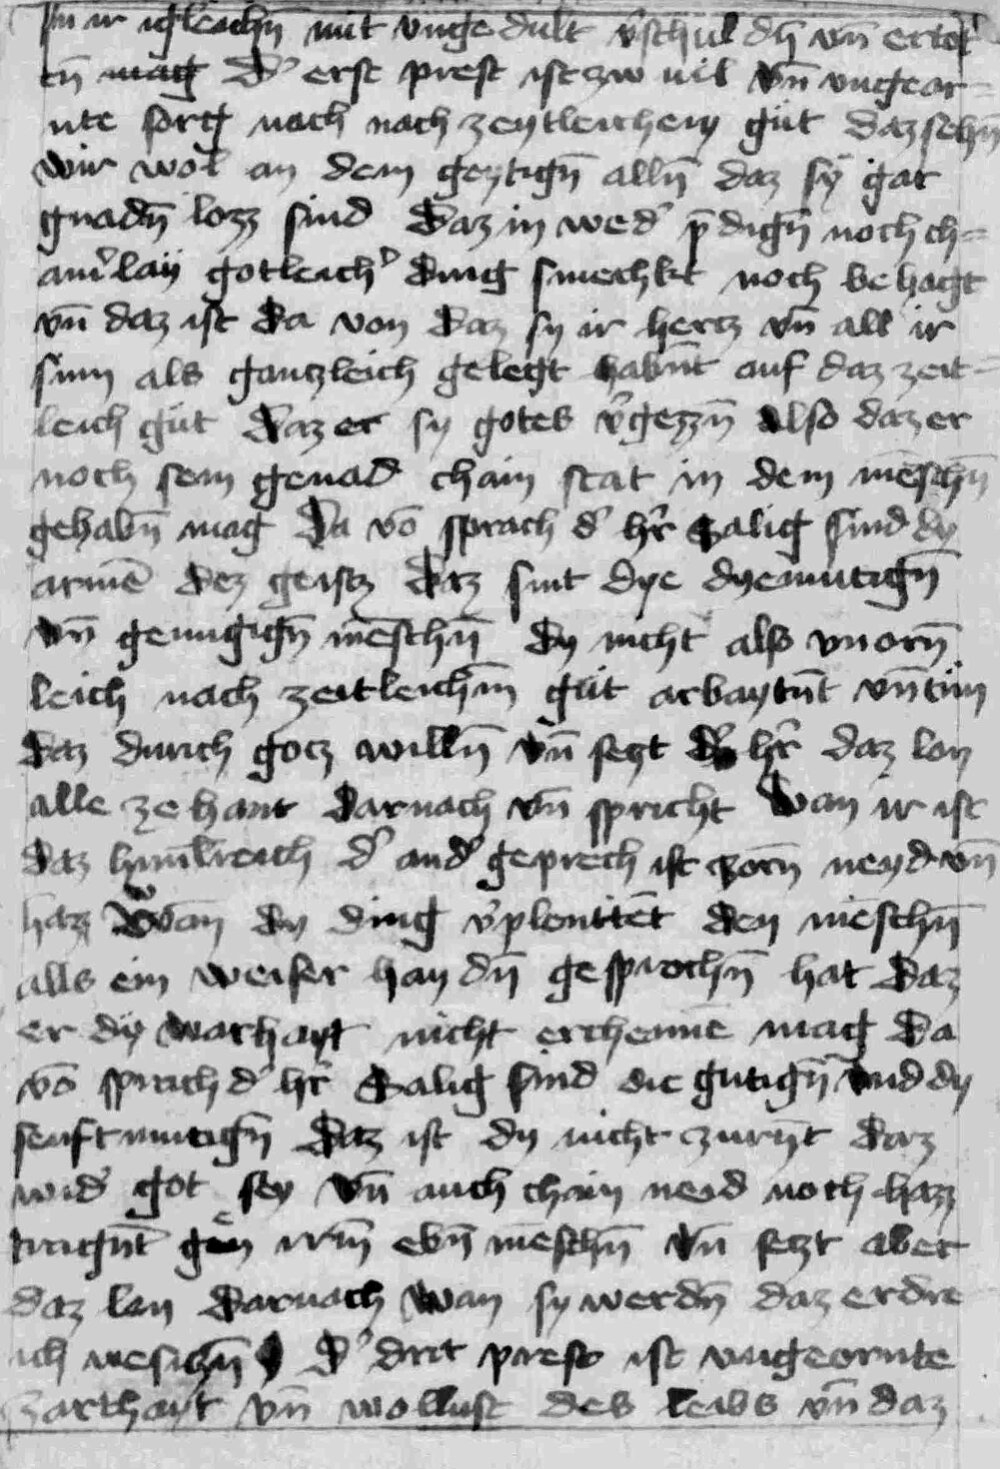 in ir igleichñ mit vnge dult v̓schuldñ vñ ertöt
eñ mag D̓ erst prest ist zw uil vñ vngeor=
nte sorg nach nach zeytleichem gůt daz sehñ
wir wol an dem geytigñ allñ daz sy gar
gnadñ lozz sind Daz in wed̓ p̄digñ noch ch=
ain̓lay gotleich̓ ding smechkt noch behagt
vñ daz ist da von daz sy ir hertz vñ all ir
sinn als gantzleich gelegt habnt̄ auf daz zeit=
leich gůt Daz er sy gotes v̓gezzñ also daz er
noch sein genad chain stat in dem mēschñ
gehabñ mag Da vō sprach d̓ hr̄ Salig sind dy
armē dez geistz Daz sint dye dyemutigñ
vñ genugigñ mēschñ dy nicht als vnorñ
leich nach zeitleichm̄ gůt arbaytnt̄ vñ tůn
daz durich gotz willñ vñ setzt d̓ hr̄ daz lon
alle ze hant darnach vñ spricht Wan ir ist
daz himl̄reich d̓ and̓ geprech ist zorñ neyd vñ
hazz Wan dy ding v̓plenttēt den mēschñ
alls ein weiser haydñ gesprochñ hat Daz
er dy warhayt nicht erchennē mag Da
vō sprich d̓ hr̄ Salig sind die gutigñ vnd dy
senftmutigñ Daz ist dy nicht zurnt̄ Daz
wid̓ got sey vñ auch chain neid noch hazz
tragnt̄ gen irm̄ ebñ mēschñ vñ setzt aber
daz lon darnach Wan sy werdñ daz erdre
ich wesiczñ D̓ drit prest ist vngeornte
zarthayt vñ wollust des leibs vñ daz